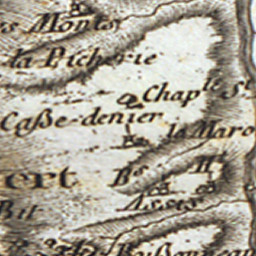 s Monts
la Picherie
Chaple St
Caße-denier
la Maro
ert
Bs Hs
Bil
Assis